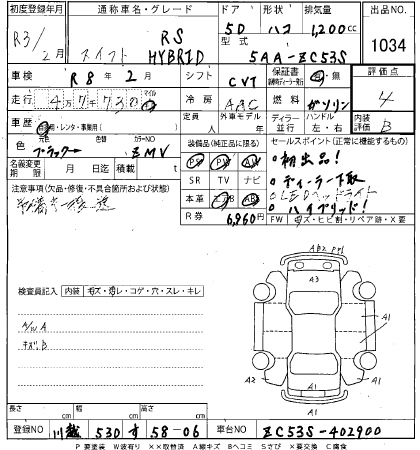 初度登録年月 通称車名・グレード ドア 形状 排気量 出品NO
R3/2月 スイフト RS HYBRID 5D ハコ 1,200cc 1034
型式 5AA-ZC53S
車検 R8年2月 シフト CVT 保証書 有・無 評価点 4
走行 47,738 マイル 冷房 AAC 燃料 ガソリン
定員 人 外車モデル ディーラー 並行 ハンドル 左・右 内装評価 B
車歴 自家用・レンタ・事業用( )
色 元色 ブラック 色替 カラーNO ZMV
装備品(純正品に限る) セールスポイント(正常に機能するもの)
PS PW AW
SR TV ナビ
本革 エアB
R券 6,960円
初出品!
ディーラー下取
LEDヘッドライト
ハイブリッド!
FW キズ・ヒビ割・リペア跡・X要
名義変更期限 月 日 積載 kg
注意事項(欠品・修復・不具合箇所および状態)
検査員記入 内装 キズ・汚レ・コゲ・穴・スレ・キレ
A/W A
キズ B
AB2 A3 A1 A1 A2 A1 A1
長さ cm 幅 cm 高さ cm
登録NO 川越 530 す 58-06 車台NO ZC53S-402900
P 要塗装 W波有り ××取替済 A線キズ Bヘコミ Sさび X要交換 C腐食